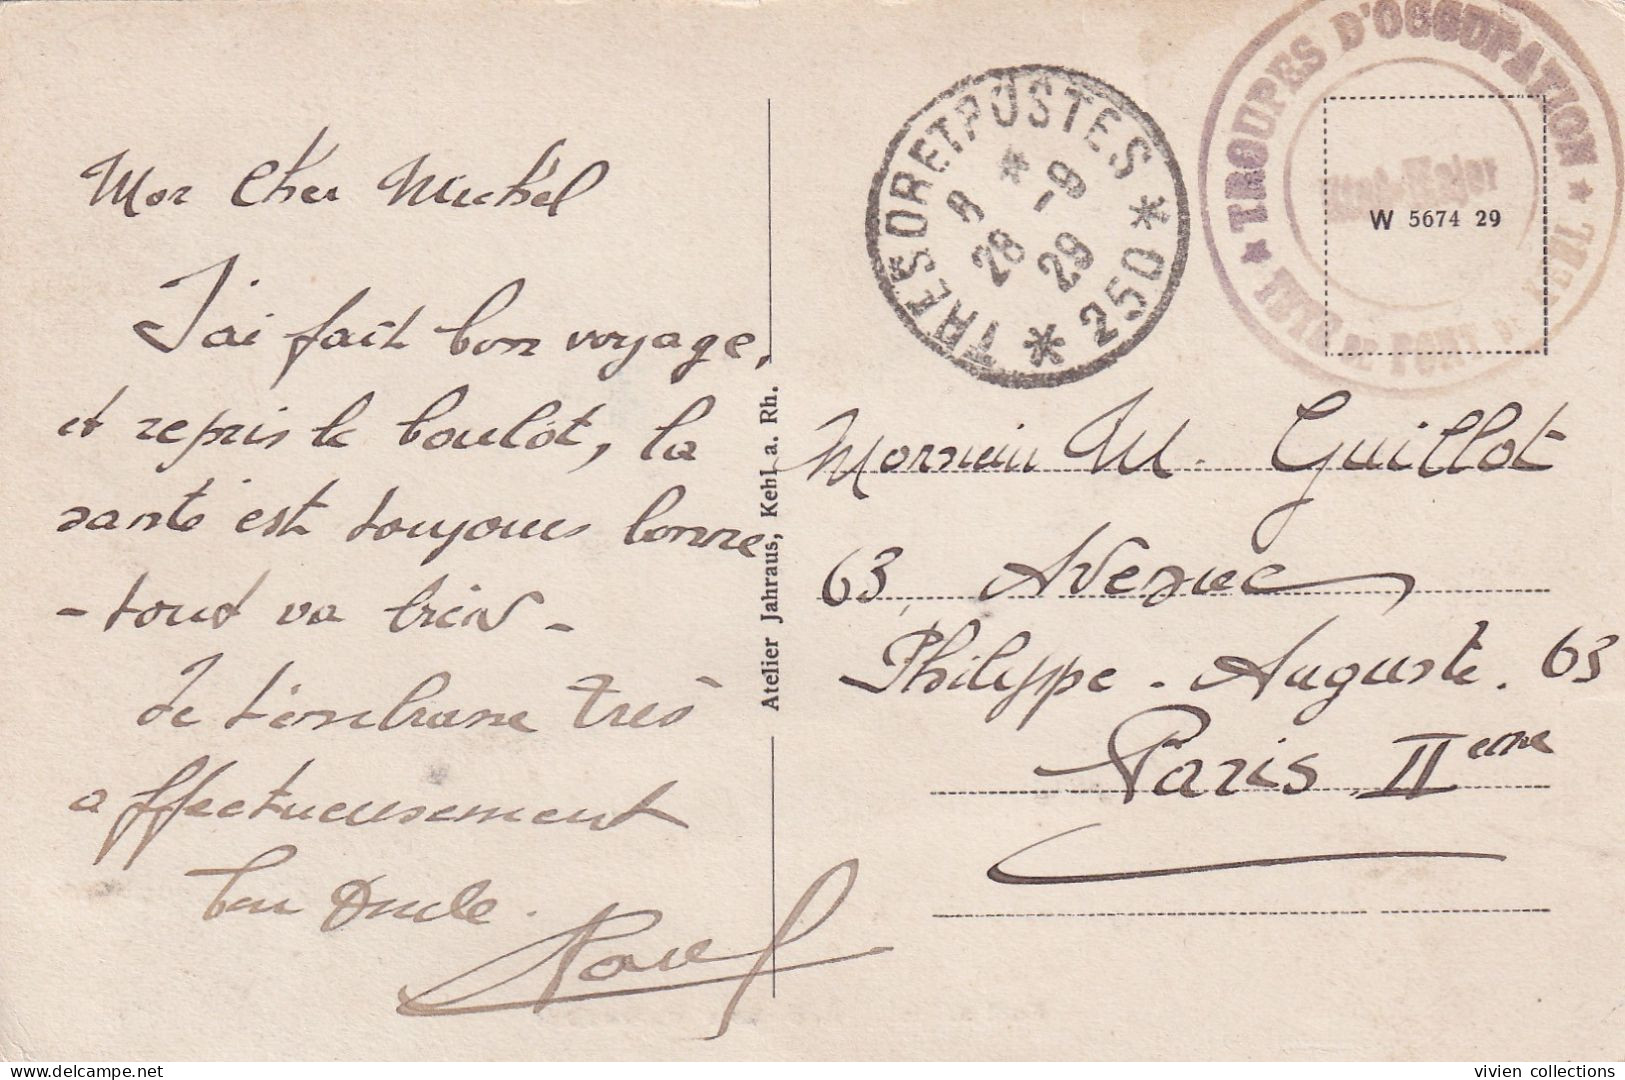 Mon Cher Michel
J'ai fait bon voyage,
et repris le boulot, la
santé est toujours bonne
- tout va bien -
Je t'embrasse très
affectueusement
ton Oncle.
Atelier Jahraus, Kehl a. Rh.
TRESOR ET POSTES * 250 *
* 8 28 -9 29
TROUPES D'OCCUPATION
TETE DE PONT DE KEHL
Etat-Major
W 5674 29
Monsieur M. Guillot
63, Avenue
Philippe-Auguste. 63
Paris IIeme
vivien collections